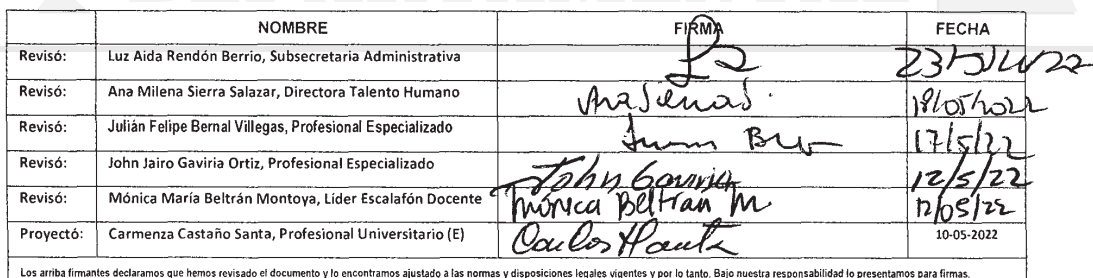 NOMBRE FIRMA FECHA
Revisó: Luz Aida Rendón Berrio, Subsecretaria Administrativa
Revisó: Ana Milena Sierra Salazar, Directora Talento Humano 18/05/2022
Revisó: Julián Felipe Bernal Villegas, Profesional Especializado 17/5/22
Revisó: John Jairo Gaviria Ortiz, Profesional Especializado John Gaviria 12/5/22
Revisó: Mónica María Beltrán Montoya, Líder Escalafón Docente Mónica Beltran M. 12/05/22
Proyectó: Carmenza Castaño Santa, Profesional Universitario (E) 10-05-2022
Los arriba firmantes declaramos que hemos revisado el documento y lo encontramos ajustado a las normas y disposiciones legales vigentes y por lo tanto. Bajo nuestra responsabilidad lo presentamos para firmas.